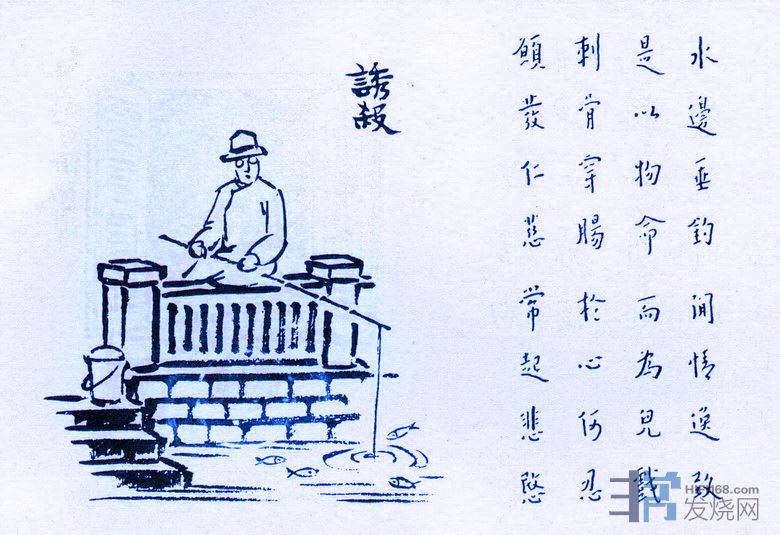 誘殺
水邊垂釣閒情逸致
是以物命而為兒戲
刺骨穿腸於心何忍
願發仁慈常起悲愍
HIFI168.com
发烧网